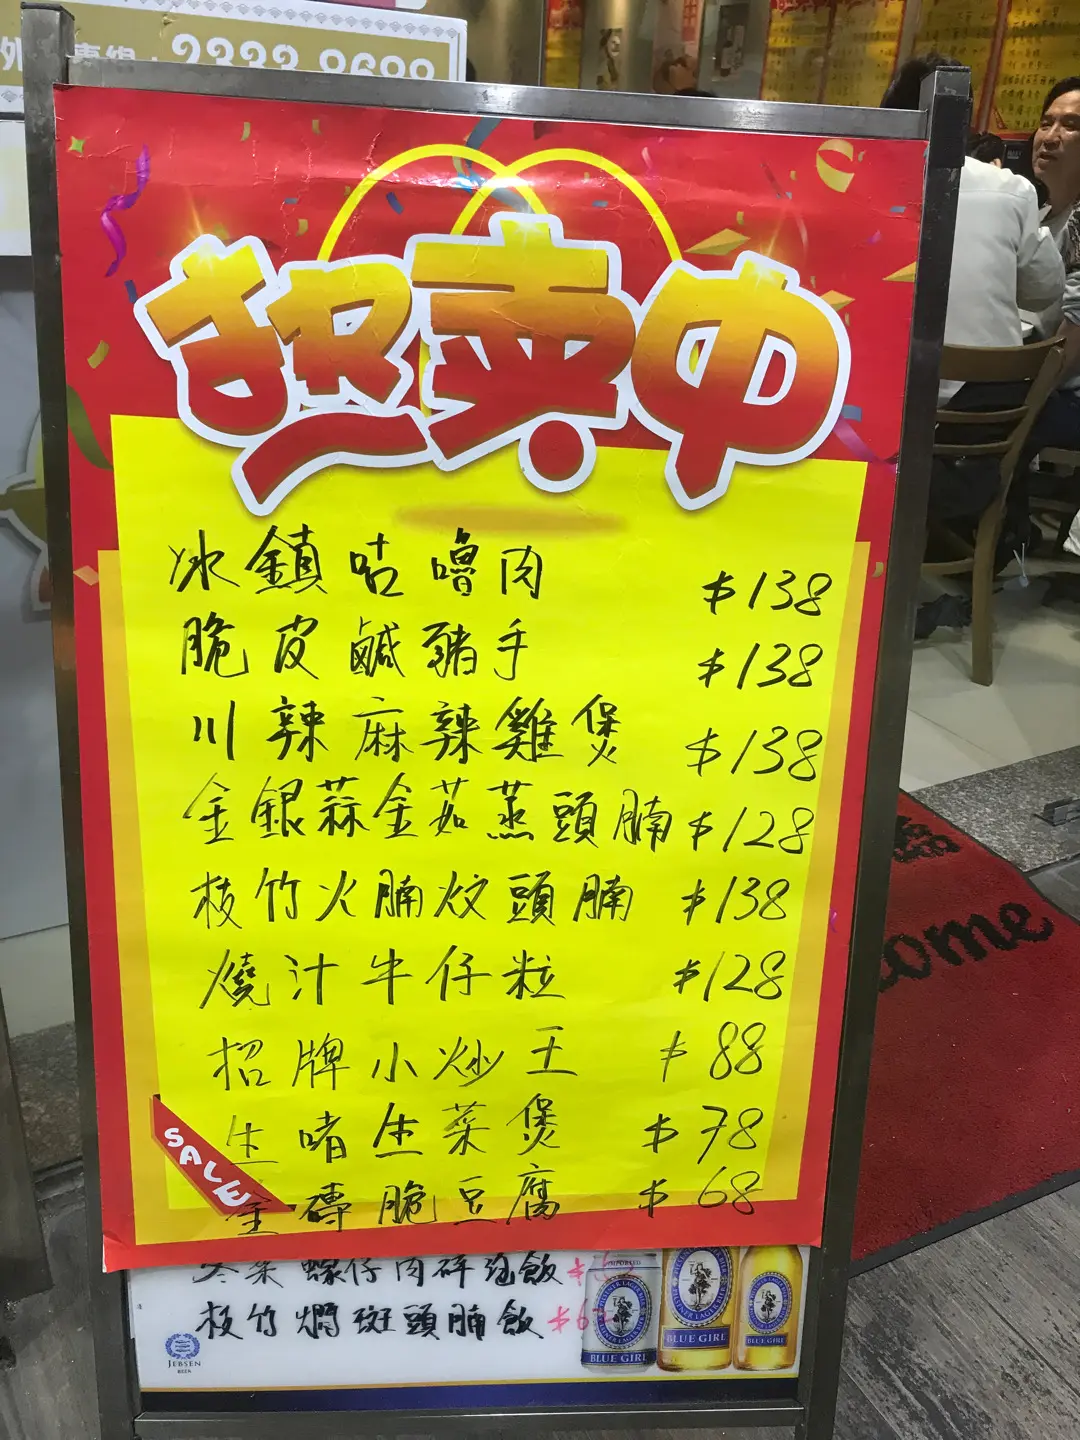 外 專線：2333 8688
熱賣中
冰鎮咕嚕肉 $138
脆皮鹹豬手 $138
川辣麻辣雞煲 $138
金銀蒜金菇蒸頭腩 $128
枝竹火腩炆頭腩 $138
燒汁牛仔粒 $128
招牌小炒王 $88
生啫生菜煲 $78
金磚脆豆腐 $68
SALE
冬菜蠔仔肉碎泡飯
枝竹焖斑頭腩飯
JEBSEN
BEER
IMPORTED
BLUE GIRL
BLUE GIRL
BLUE GIRL
come